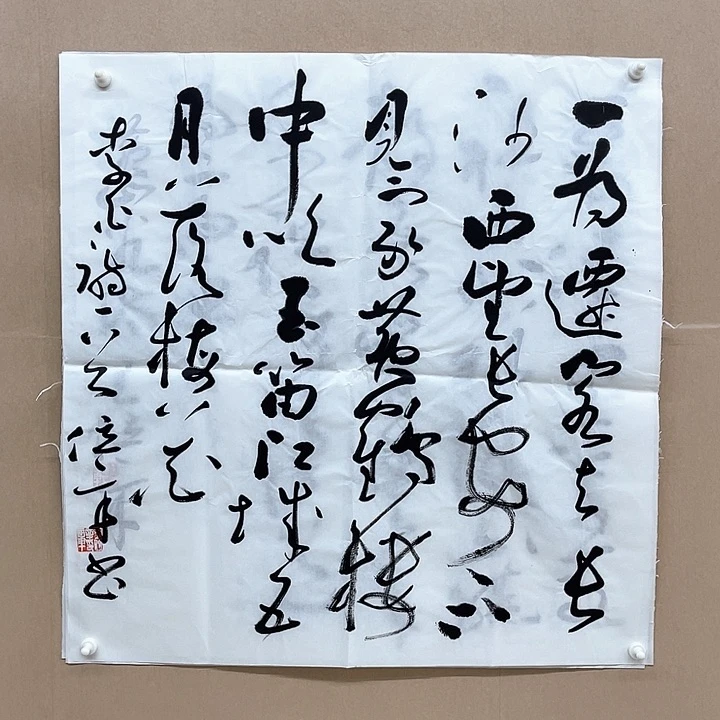 一为遷客去长
沙西望长安不
見家黄鶴楼
中吹玉笛江城五
月落梅花
李白詩一首 书